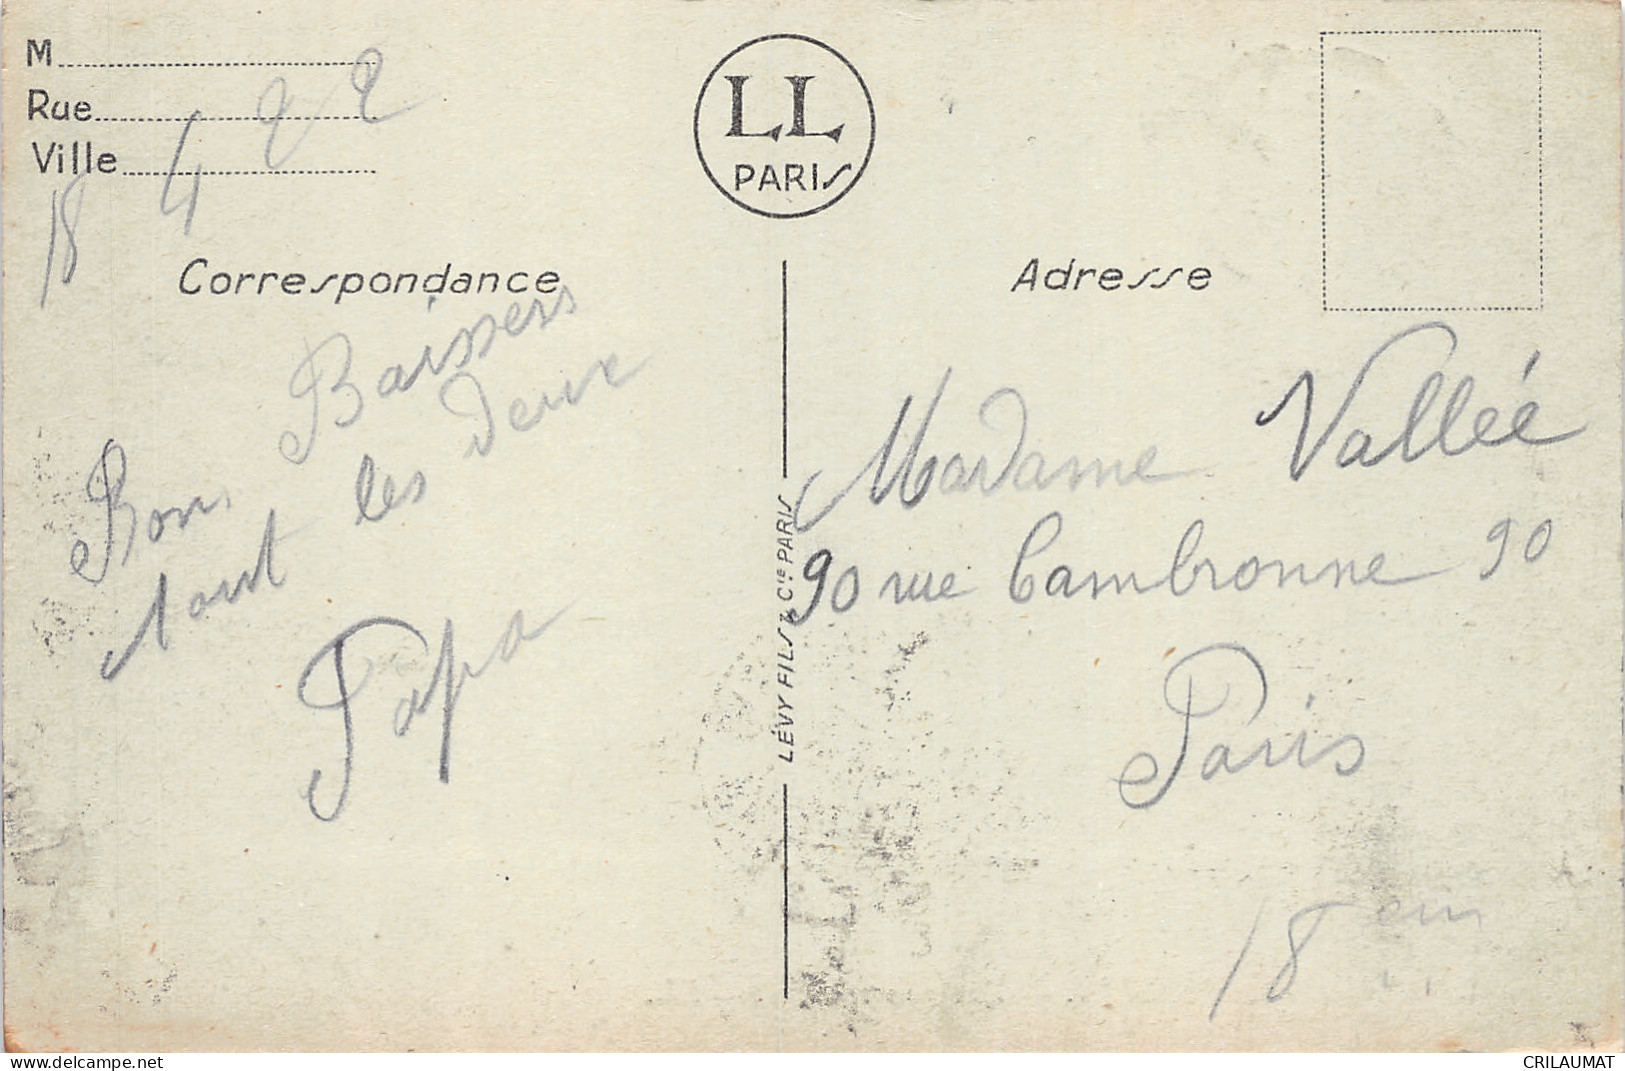 M
Rue
Ville
18 4 22
LL
PARIS
Correspondance
Bons Baisers
tout les deux
Papa
LÉVY FILS & Cie PARIS
Adresse
Madame Vallée
90 rue Cambronne 90
Paris
18 em
delcampe.net
CRILAUMAT